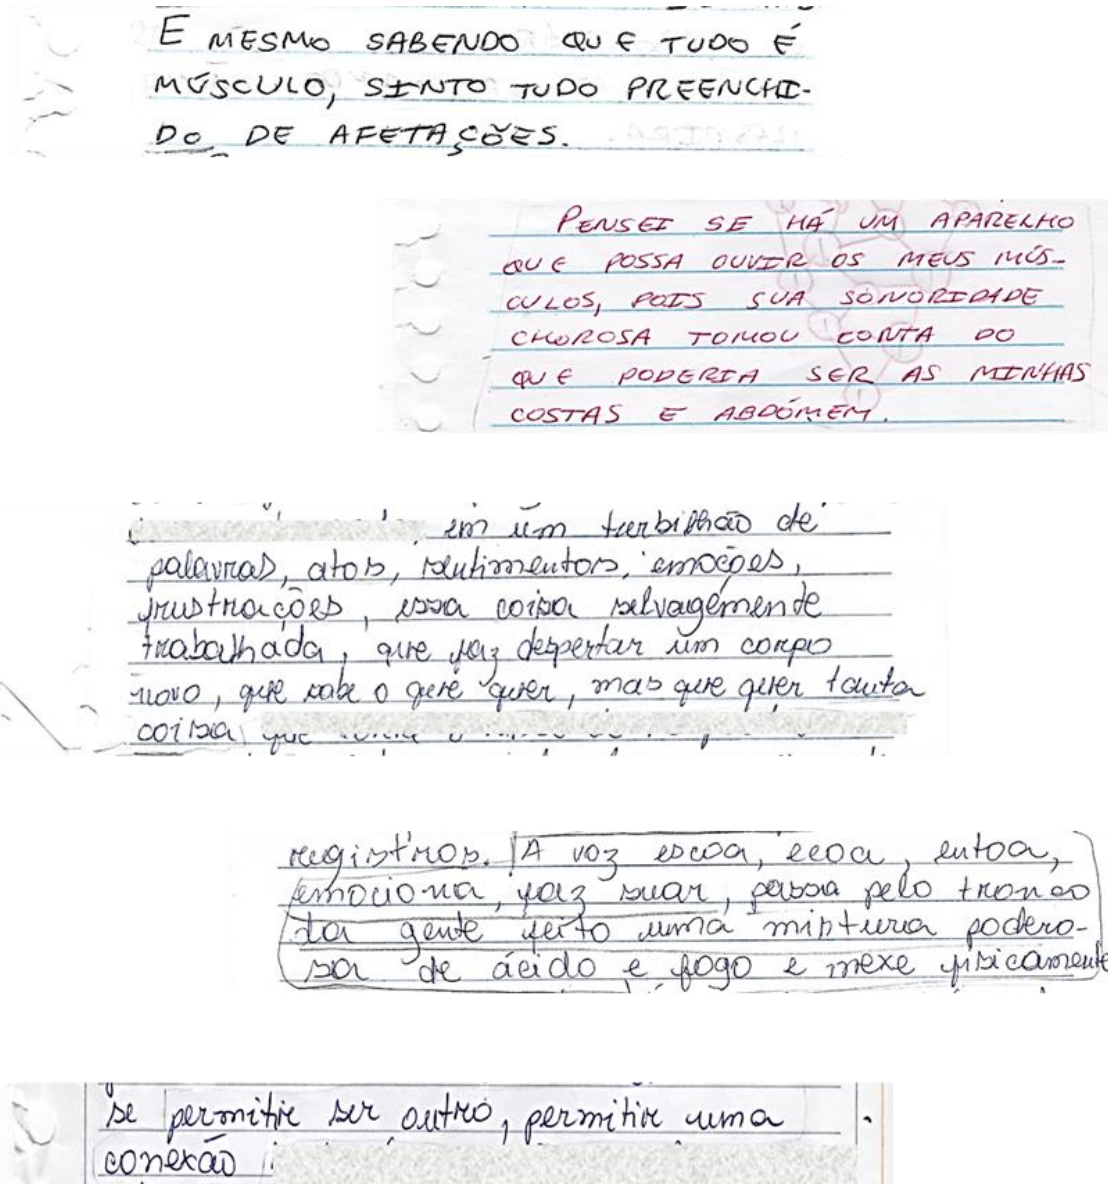 E MESMO SABENDO QUE TUDO É
MÚSCULO, SINTO TUDO PREENCHI-
DO DE AFETAÇÕES.
PENSEI SE HÁ UM APARELHO
QUE POSSA OUVIR OS MEUS MÚS-
CULOS, POIS SUA SONORIDADE
CHOROSA TOMOU CONTA DO
QUE PODERIA SER AS MINHAS
COSTAS E ABDÓMEM.
em um turbilhão de
palavras, atos, sentimentos, emoções,
frustrações, essa coisa selvagemente
trabalhada, que faz despertar um corpo
novo, que sabe o que quer, mas que quer tanta
coisa que
registros. A voz escoa, ecoa, entoa,
emociona, faz suar, passa pelo tronco
da gente feito uma mistura podero-
sa de ácido e fogo e mexe fisicamente
se permitir ser outro, permitir uma
conexão